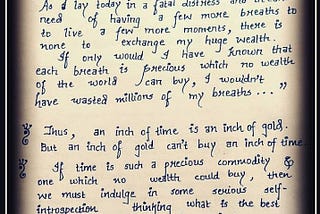 As I lay today in a fatal distress and
need of having a few more breaths to
to live a few more moments, there is
none to exchange my huge wealth.
If only would I have known that
each breath is precious which no wealth
of the world can buy, I wouldn't
have wasted millions of my breaths..."
Thus, an inch of time is an inch of gold.
But an inch of gold can't buy an inch of time
If time is such a precious commodity &
one which no wealth could buy, then
we must indulge in some serious self-
introspection thinking what is the best